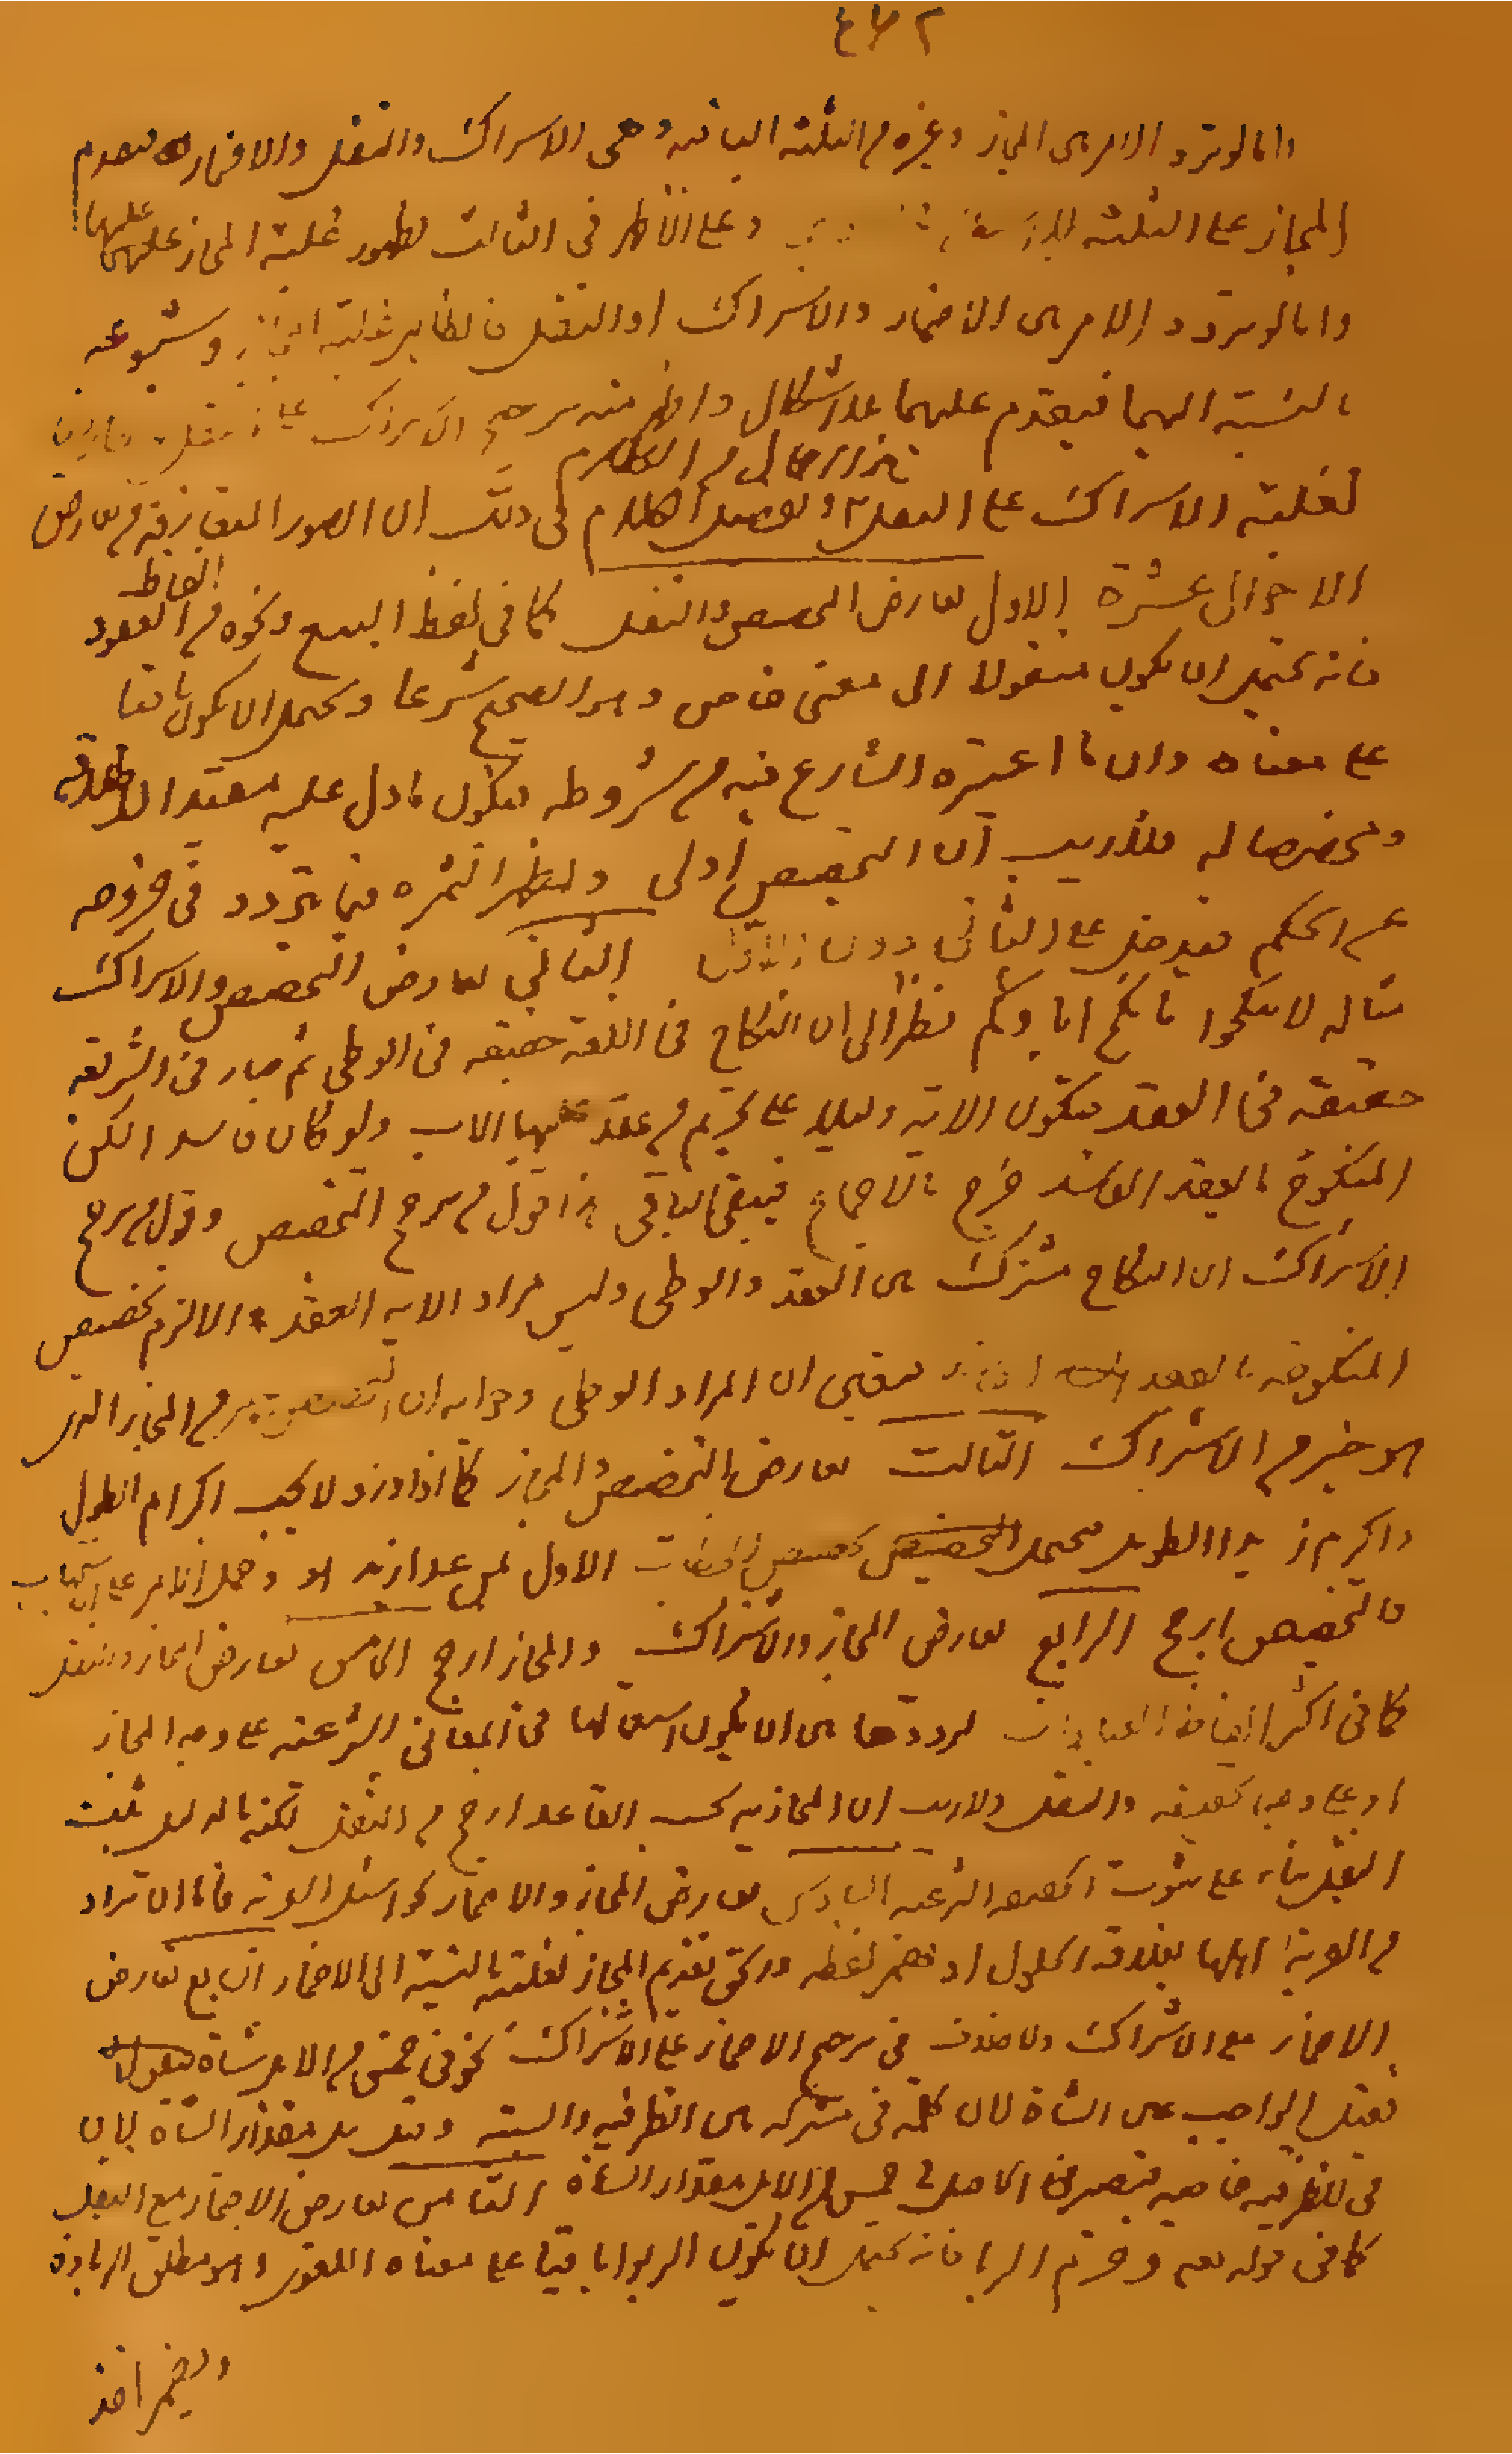 واما لو تردد الامر بين المجاز وغيره من الثلثة الباقية وهى الاشتراك والنقل والاضمار فيقدم
المجاز على الثلثة وعلى الأظهر فى الثالث لظهور غلبة المجاز عليهما
واما لو تردد الامر بين الاضمار والاشتراك او النقل فالظاهر غلبة وشيوعه
بالنسبة اليهما فيقدم عليهما على اشكال واظهر منه ترجيح الاشتراك على النقل
هذا اجمال من الكلام
لغلبة الاشتراك على النقل وتفصيل الكلام فى ذلك ان الصور من تعارض
الاحوال عشرة الاول تعارض التخصيص والنقل كما فى لفظ البيع ونحوه من الفاظ العقود
فانه يحتمل ان يكون منقولا الى معنى خاص وهو الصحيح شرعا ويحتمل ان يكون باقيا
على معناه وان ما اعتبره الشارع فيه من شروطه فيكون ما دل عليه مقيدا لاطلاقه
ومخصصا له فلا ريب ان التخصيص اولى وتظهر الثمرة فيما يتردد فى خروجه
عن الحكم فيدخل على الثانى دون الاول الثانى تعارض التخصيص والاشتراك
مثاله لا تنكحوا ما نكح اباؤكم نظرا الى ان النكاح فى اللغة حقيقة فى الوطى ثم صار فى الشريعة
حقيقة فى العقد فيكون الاية دليلا على تحريم من عقد عليها الاب ولو كان فاسدا لكن
المنكوحة بالعقد الفاسد خرج بالاجماع فيبقى الباقى هذا قول من يرجح التخصيص وقول من يرجح
الاشتراك ان النكاح مشترك بين العقد والوطى وليس مراد الاية العقد والا لزم تخصيص
المنكوحة بالعقد فتعين ان المراد الوطى وجوابه ان التخصيص خير من المجاز الذى
هو خير من الاشتراك الثالث تعارض التخصيص والمجاز كما اذا ورد لا يجب اكرام الطوال
واكرم زيدا الطويل فيحتمل تخصيص الاول بمن عدا زيد وحمل الامر على الاستحباب
فالتخصيص ارجح الرابع تعارض المجاز والاشتراك والمجاز ارجح الخامس تعارض المجاز والنقل
كما فى اكثر الفاظ العبادات لترددها بين ان يكون استعمالها فى المعانى الشرعية على وجه المجاز
او على وجه الحقيقة والنقل ولا ريب ان المجازية بحسب القاعدة ارجح من النقل لكنه ما لم يثبت
النقل بناء على ثبوت الحقيقة الشرعية السادس تعارض المجاز والاضمار نحو اسئل القرية فاما ان يراد
من القرية اهلها بعلاقة الحلول او يضمر لفظه والحق تقديم المجاز لغلبته بالنسبة الى الاضمار السابع تعارض
الاضمار مع الاشتراك ولا خلاف فى ترجيح الاضمار على الاشتراك نحو فى خمس من الابل شاة
فقيل الواجب عين الشاة لان كلمة فى مشتركه بين الظرفية والسببية وقيل بل مقدار الشاة لان
فى للظرفية خاصة فيصير الحاصل فى خمس من الابل مقدار الشاة الثامن تعارض الاضمار مع النقل
كما فى قوله تعالى وحرم الربا فانه يحتمل ان يكون الربوا باقيا على معناه اللغوى وهو مطلق الزيادة
ويضمر اخذ